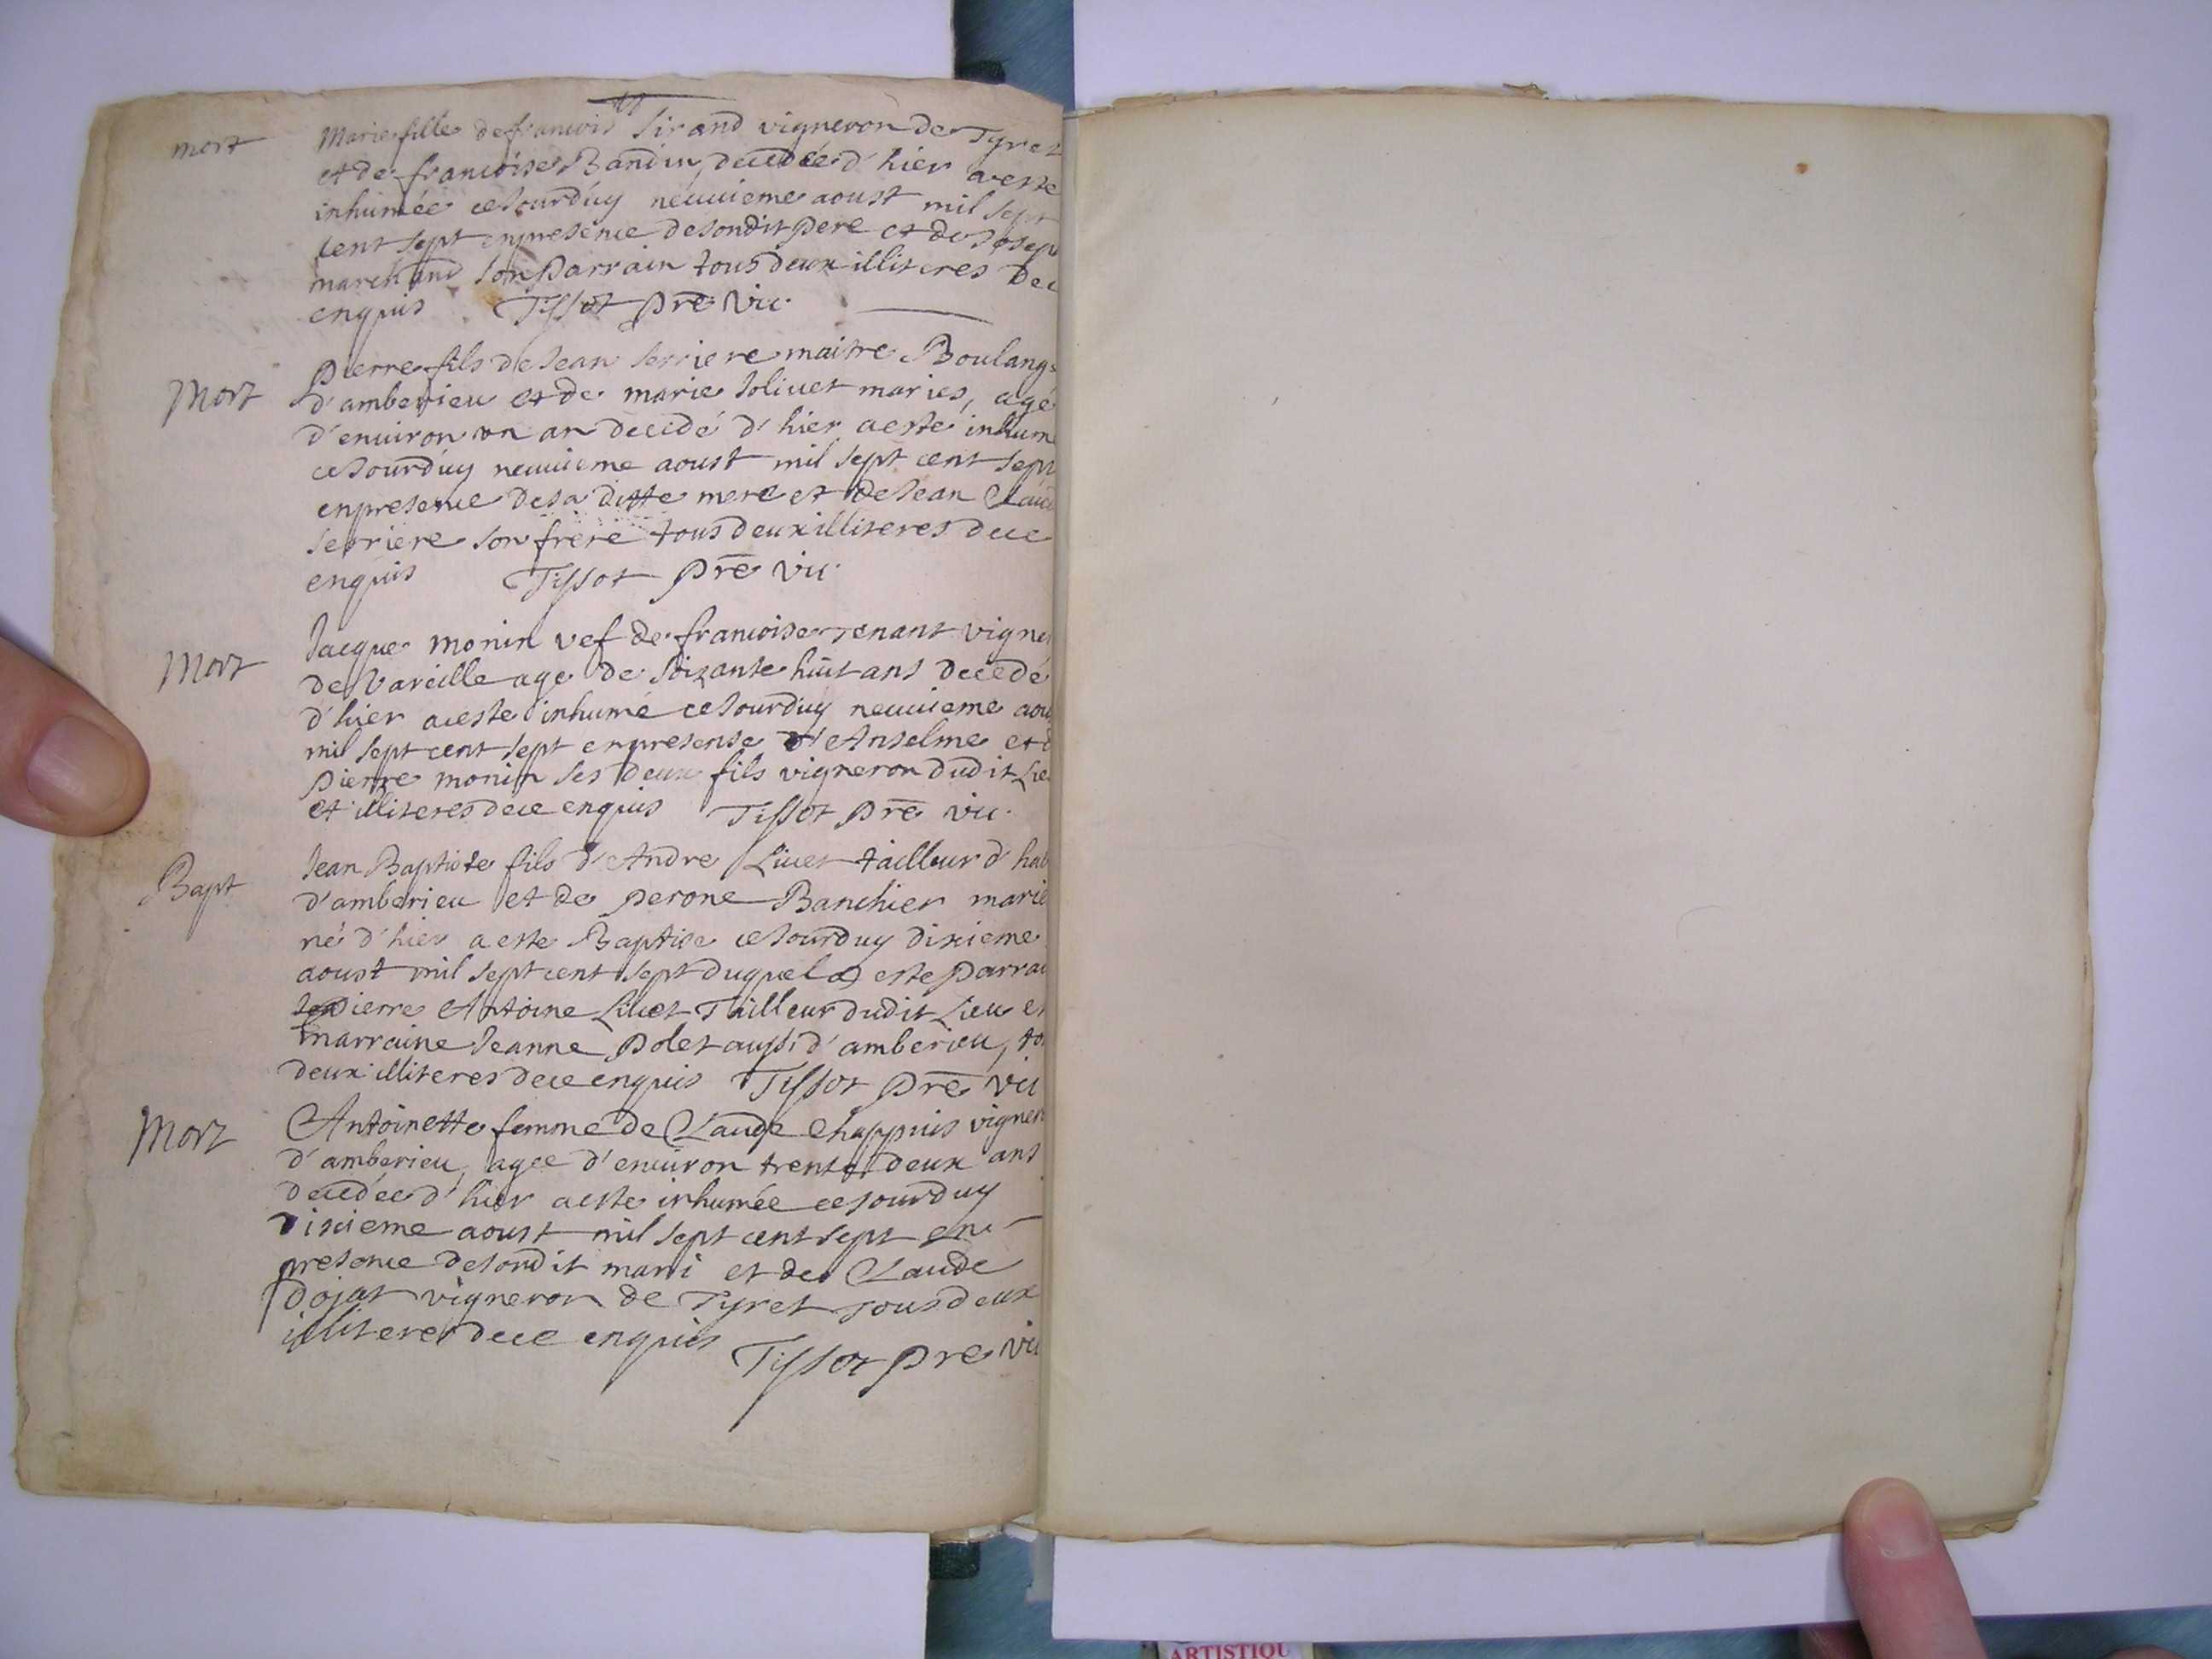 mort Marie fille de francois Sirand vigneron de Tyret
et de francoise Bandin, decedée d'hier a este
inhumée ce Jourduy neuuieme aoust mil sept
cent sept en presence de son dit pere et de Josep
marchand son parrain tous deux illiteres de ce
enquis Tissot pre vic.
Mort Pierre fils de Jean serriere maitre Boulang
d'amberieu et de marie Joliuet maries, agé
d'enuiron un an decedé d'hier a este inhum
ce Jourduy neuuieme aoust mil sept cent sept
en presence de sa ditte mere et de Jean Claud
serriere son frere tous deux illiteres de ce
enquis Tissot pre vic.
Mort Jacque monin vef de francoise Tenant vigne
de Vareille age de soizante huit ans decedé
d'hier a este inhumé ce Jourduy neuuieme aou
mil sept cent sept en presense d'Anselme et d
Pierre monin ses deux fils vigneron dudit Lie
et illiteres de ce enquis Tissot pre vic.
Bapt Jean Baptiste fils d'Andre Liuet tailleur d'hab
d'amberieu et de perone Banchier marie
né d'hier a este Baptise ce Jourduy dixieme
aoust mil sept cent sept duquel a este parrai
pierre Antoine Liuet Tailleur dudit Lieu et
marraine Jeanne Polet aussi d'amberieu, to
deux illiteres de ce enquis Tissot pre vic
Mort Antoinette femme de Claude Chappuis vigner
d'amberieu, agee d'enuiron trente deux ans
decedée d'hier a este inhumée ce Jourduy
dixieme aoust mil sept cent sept en
presence de son dit mari et de Claude
Dojat vigneron de Tyret Tous deux
illiteres de ce enquis
Tissot pre vic
ARTISTIQU